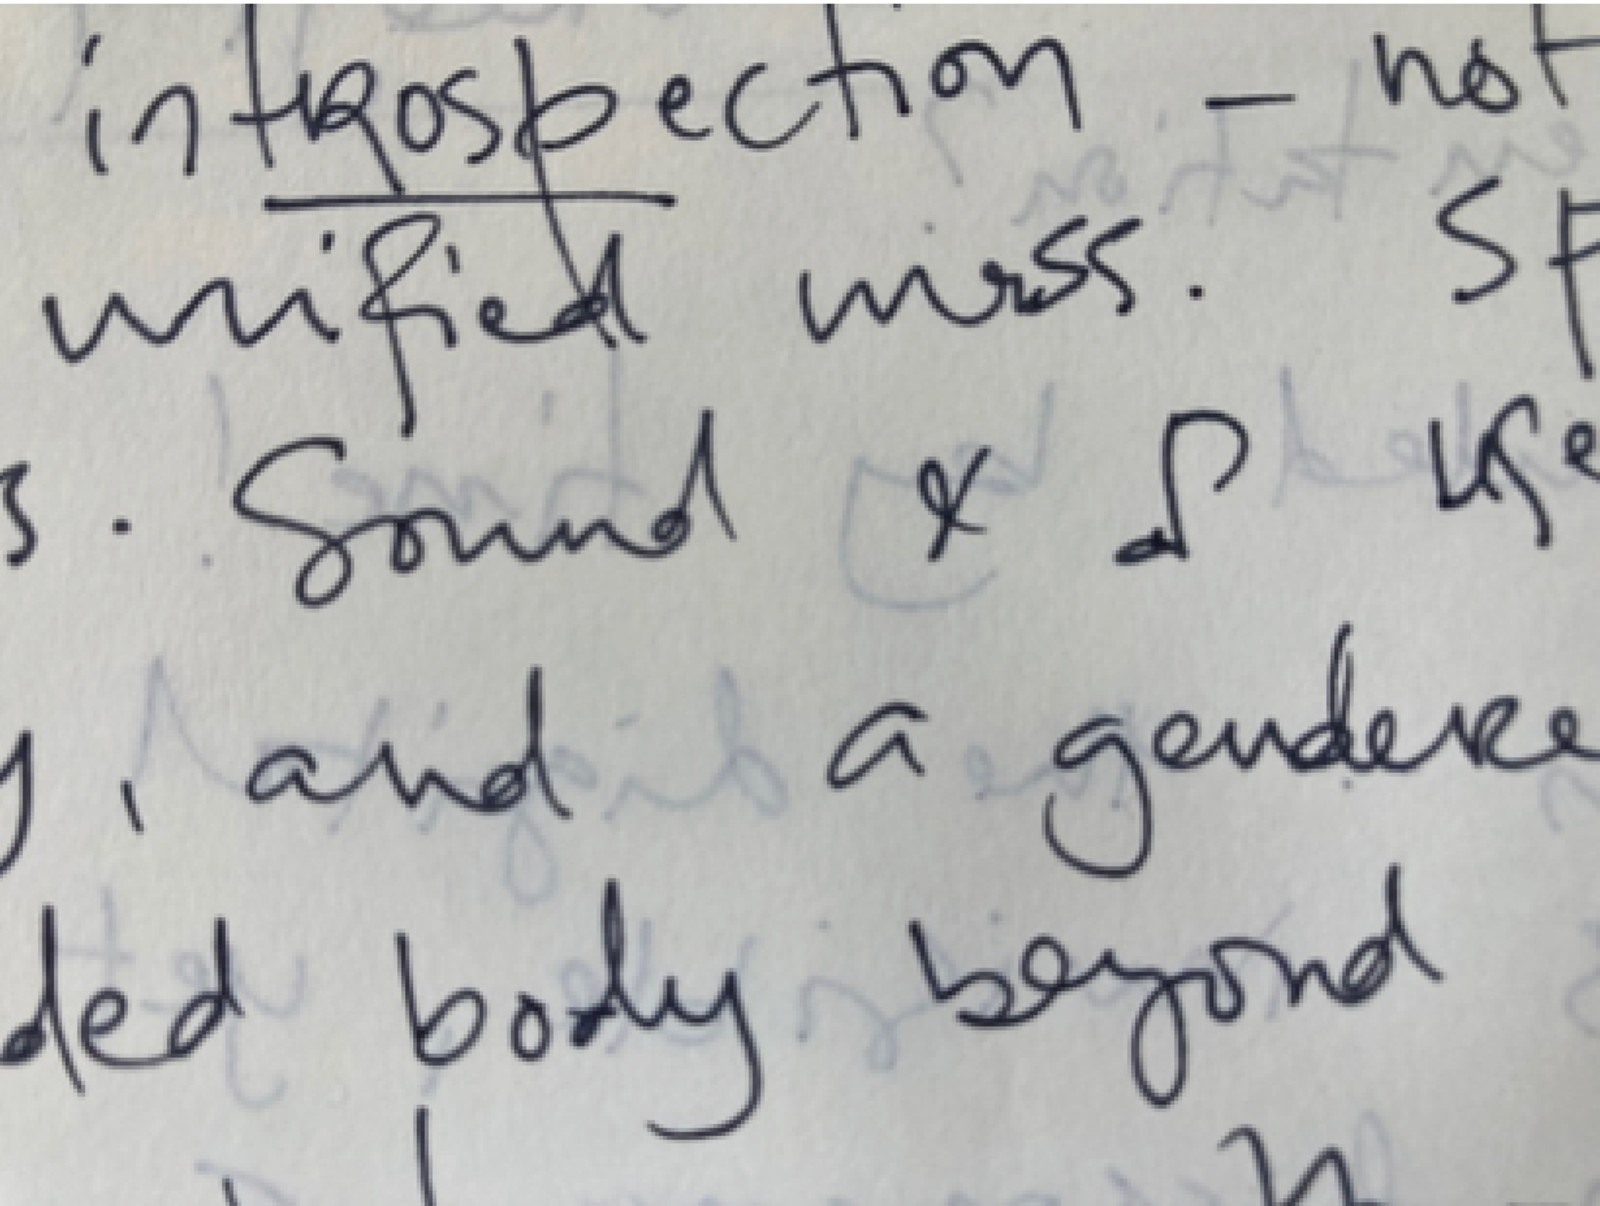 introspection – not
unified mass. Sp
s. Sound & use
y, and a gendere
ded body beyond